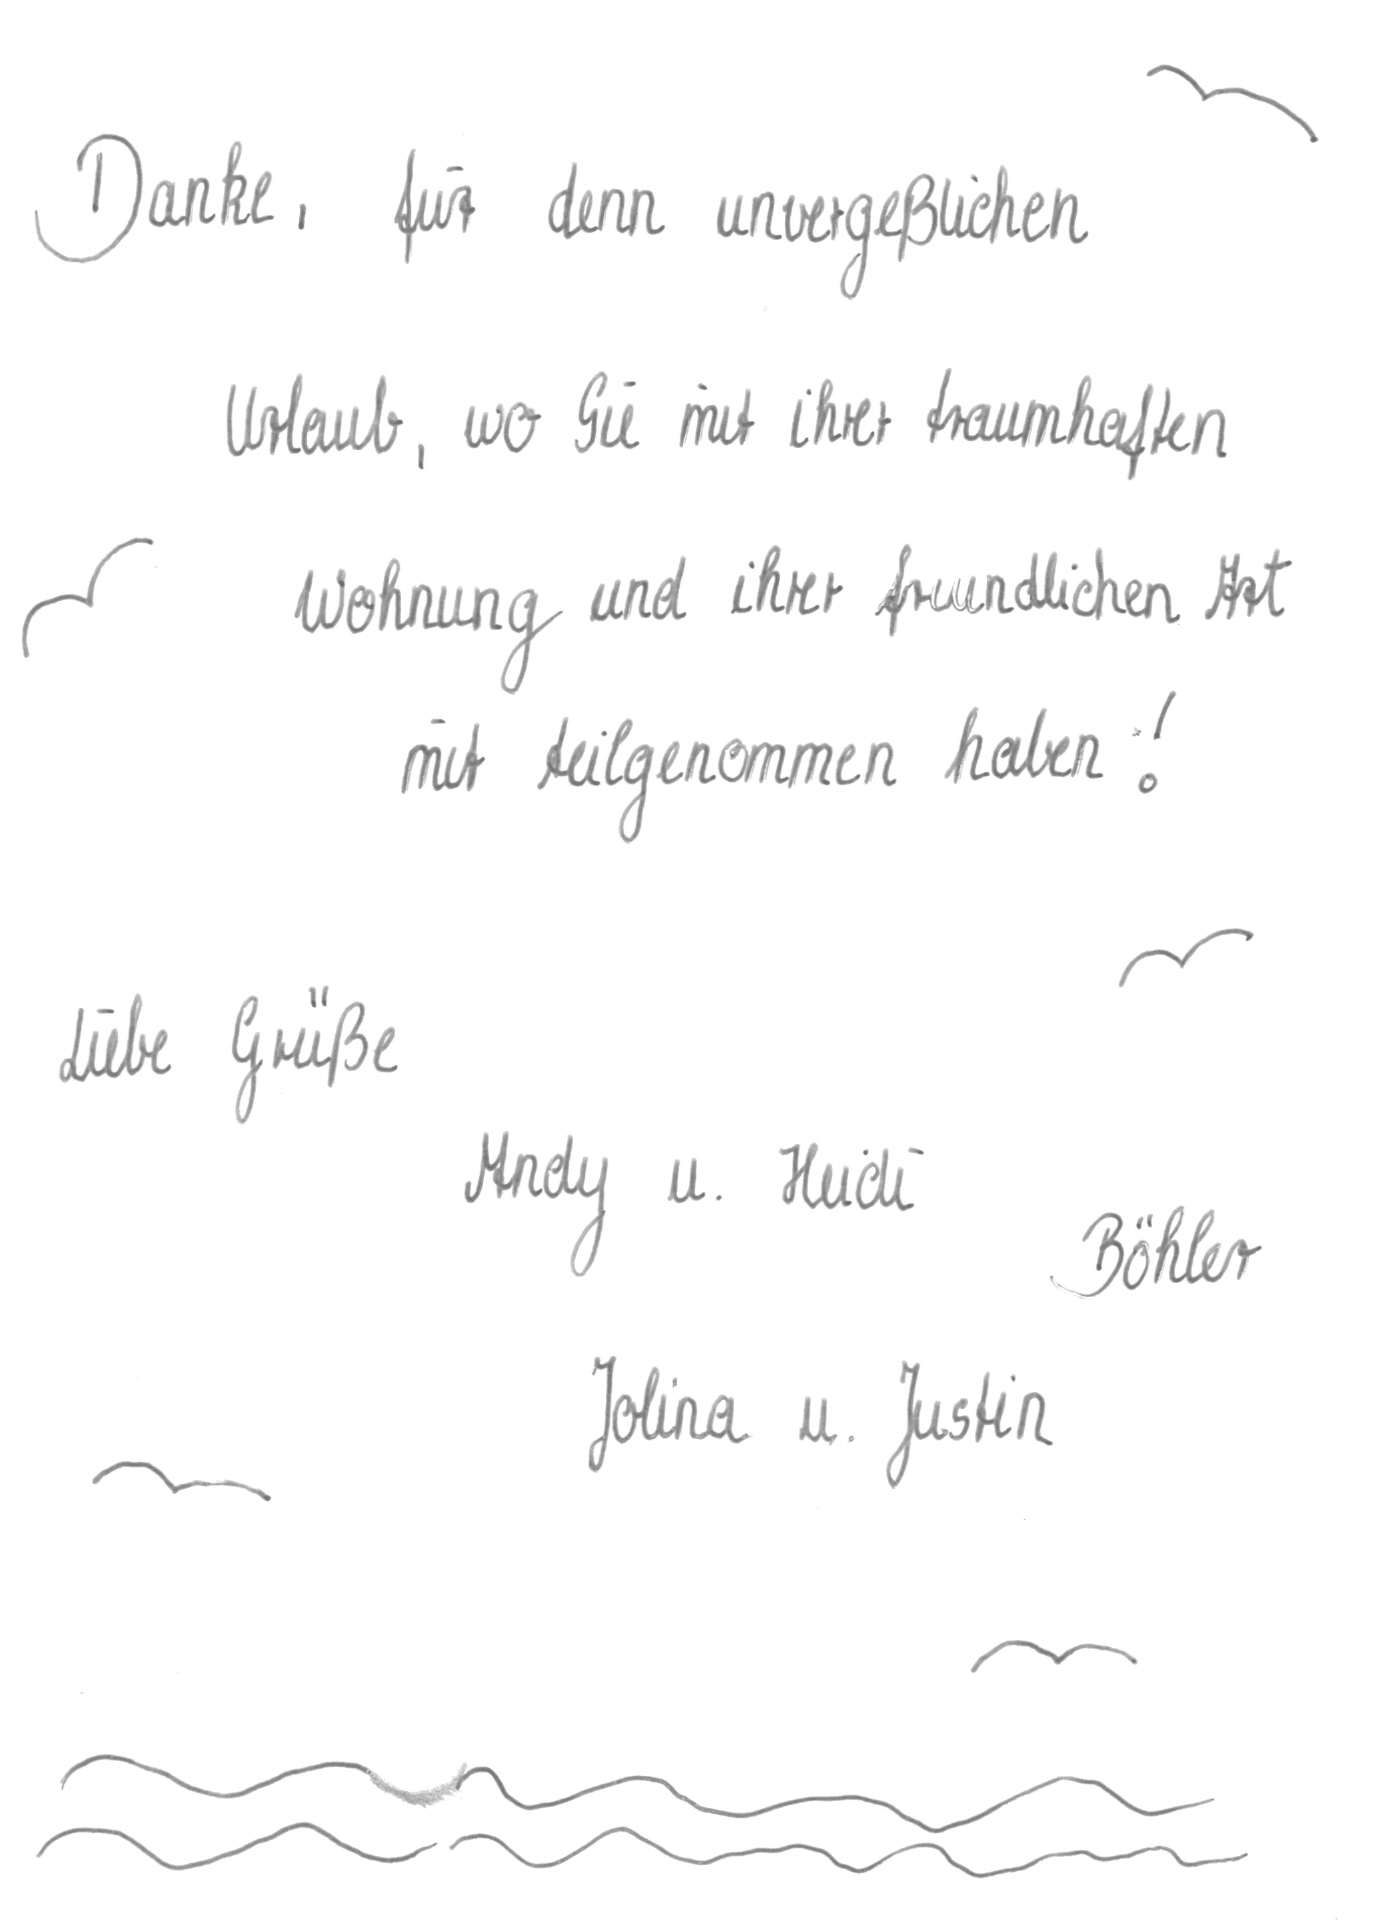 Danke, für denn unvergeßlichen
Urlaub, wo Sie mit ihrer traumhaften
Wohnung und ihrer freundlichen Art
mit teilgenommen haben!
Liebe Grüße
Andy u. Heidi
Böhler
Jolina u. Justin